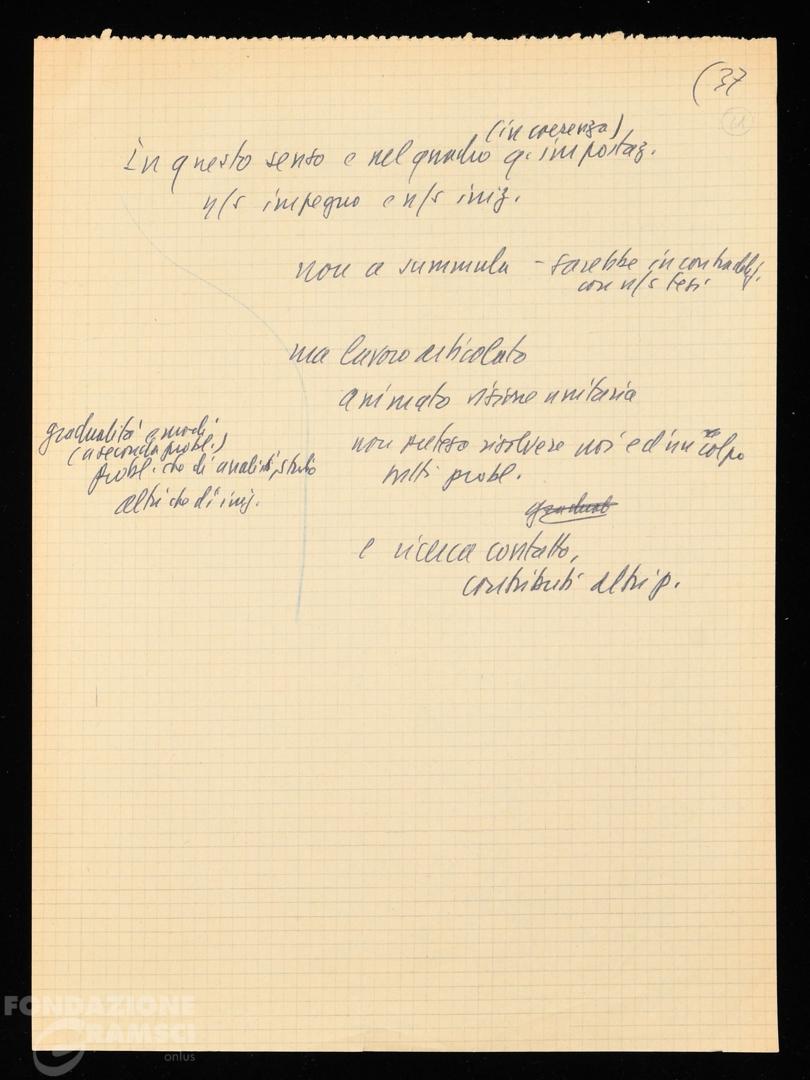 (37
21
(in coerenza)
In questo senso e nel quadro q. impostaz.
n/s impegno e n/s iniz.
non a summula - sarebbe in contradd.
con n/s tesi
ma lavoro articolato
animato visione unitaria
gradualità e modi
(a seconda probl.)
probl. che di analisi, studio
altri che di iniz.
non pretesa risolvere noi ed in un colpo
tutti probl.
graduat
e ricerca contatto,
contributi altri p.
FONDAZIONE
GRAMSCI
onlus